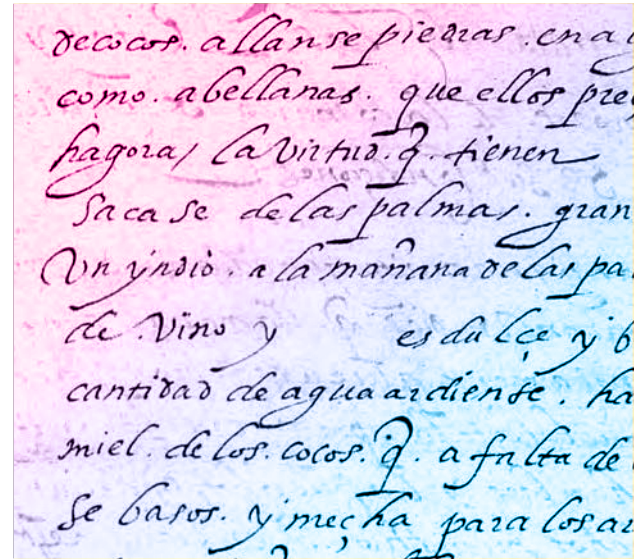 de cocos. allanse piedras. en a
como. abellanas. que ellos pre
hagora, la virtud. q̃. tienen
Sacase de las palmas. gran
Un yndio. a la mañana de las pa
de. Vino y es dulçe y b
cantidad de agua ardiente. ha
miel. de los. cocos. q̃. a falta de
Se basos. y meçha para los ar